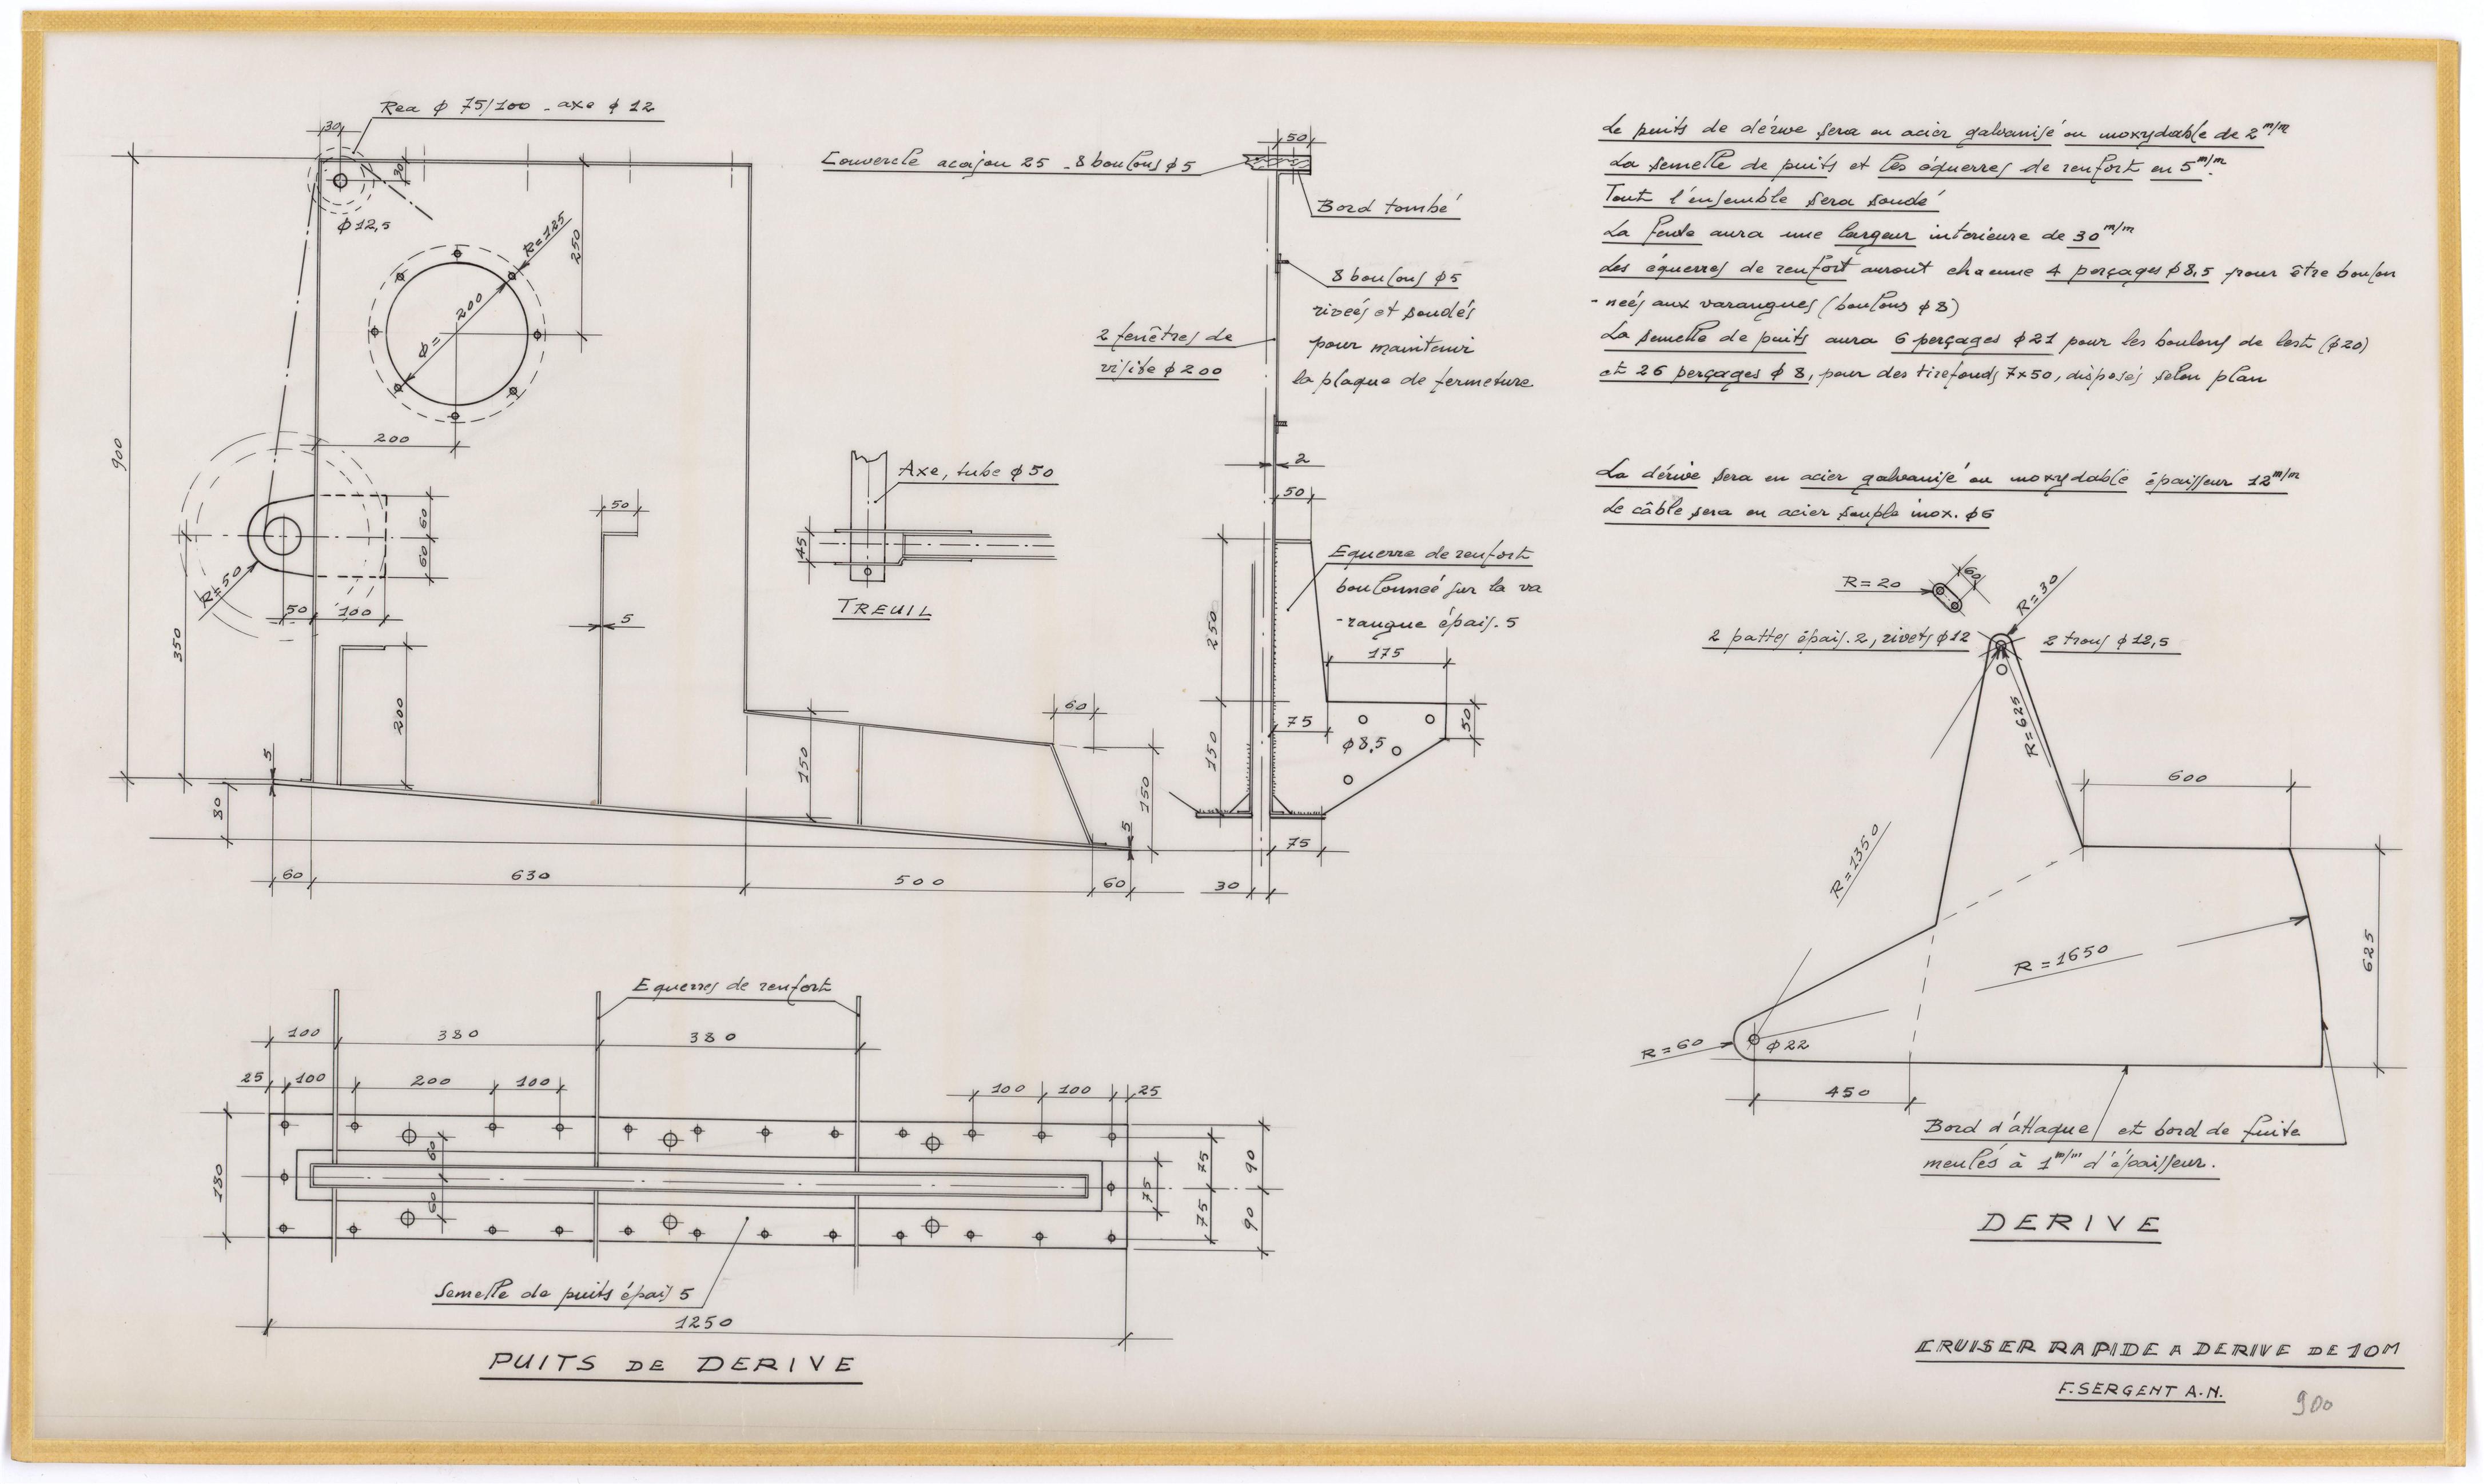 Rea ϕ 75/100 _ axe ϕ 12
30
30
ϕ 12,5
R=125
250
ϕ= 200
200
900
350
R=50
50
100
60
60
50
5
200
5
80
60
630
500
60
150
60
150
5
Couvercle acajou 25 _ 8 boulons ϕ5
50
Bord tombé
8 boulons ϕ5
riveés et soudés
pour maintenir
la plaque de fermeture
2 fenêtres de
visite ϕ 200
Axe, tube ϕ 50
45
TREUIL
2
50
Equerre de renfort
boulonneé sur la va
-rangue épais. 5
250
150
175
75
50
ϕ 8,5
75
30
Le puits de dérive sera en acier galvanisé ou inoxydable de 2 m/m
La semelle de puits et les équerres de renfort en 5 m/m.
Tout l'ensemble sera soudé
La fente aura une largeur interieure de 30 m/m
Les équerres de renfort auront chacune 4 perçages ϕ 8,5 pour être boulon
-neés aux varangues (boulons ϕ 8)
La semelle de puits aura 6 perçages ϕ 21 pour les boulons de lest (ϕ 20)
et 26 perçages ϕ 8, pour des tirefonds 7x50, disposés selon plan
La dérive sera en acier galvanisé ou inoxydable épaisseur 12 m/m
Le câble sera en acier souple inox. ϕ6
R=20
60
R=30
2 pattes épais. 2, rivets ϕ12
2 trous ϕ 12,5
R=625
600
R=1350
R=1650
625
R=60
ϕ 22
450
Bord d'attaque et bord de fuite
meulés à 1 m/m d'épaisseur.
DERIVE
Equerres de renfort
100
380
380
25
100
200
100
100
100
25
180
60
60
75
75
75
90
90
Semelle de puits épais 5
1250
PUITS DE DERIVE
CRUISER RAPIDE A DERIVE DE 10M
F. SERGENT A.N.
900